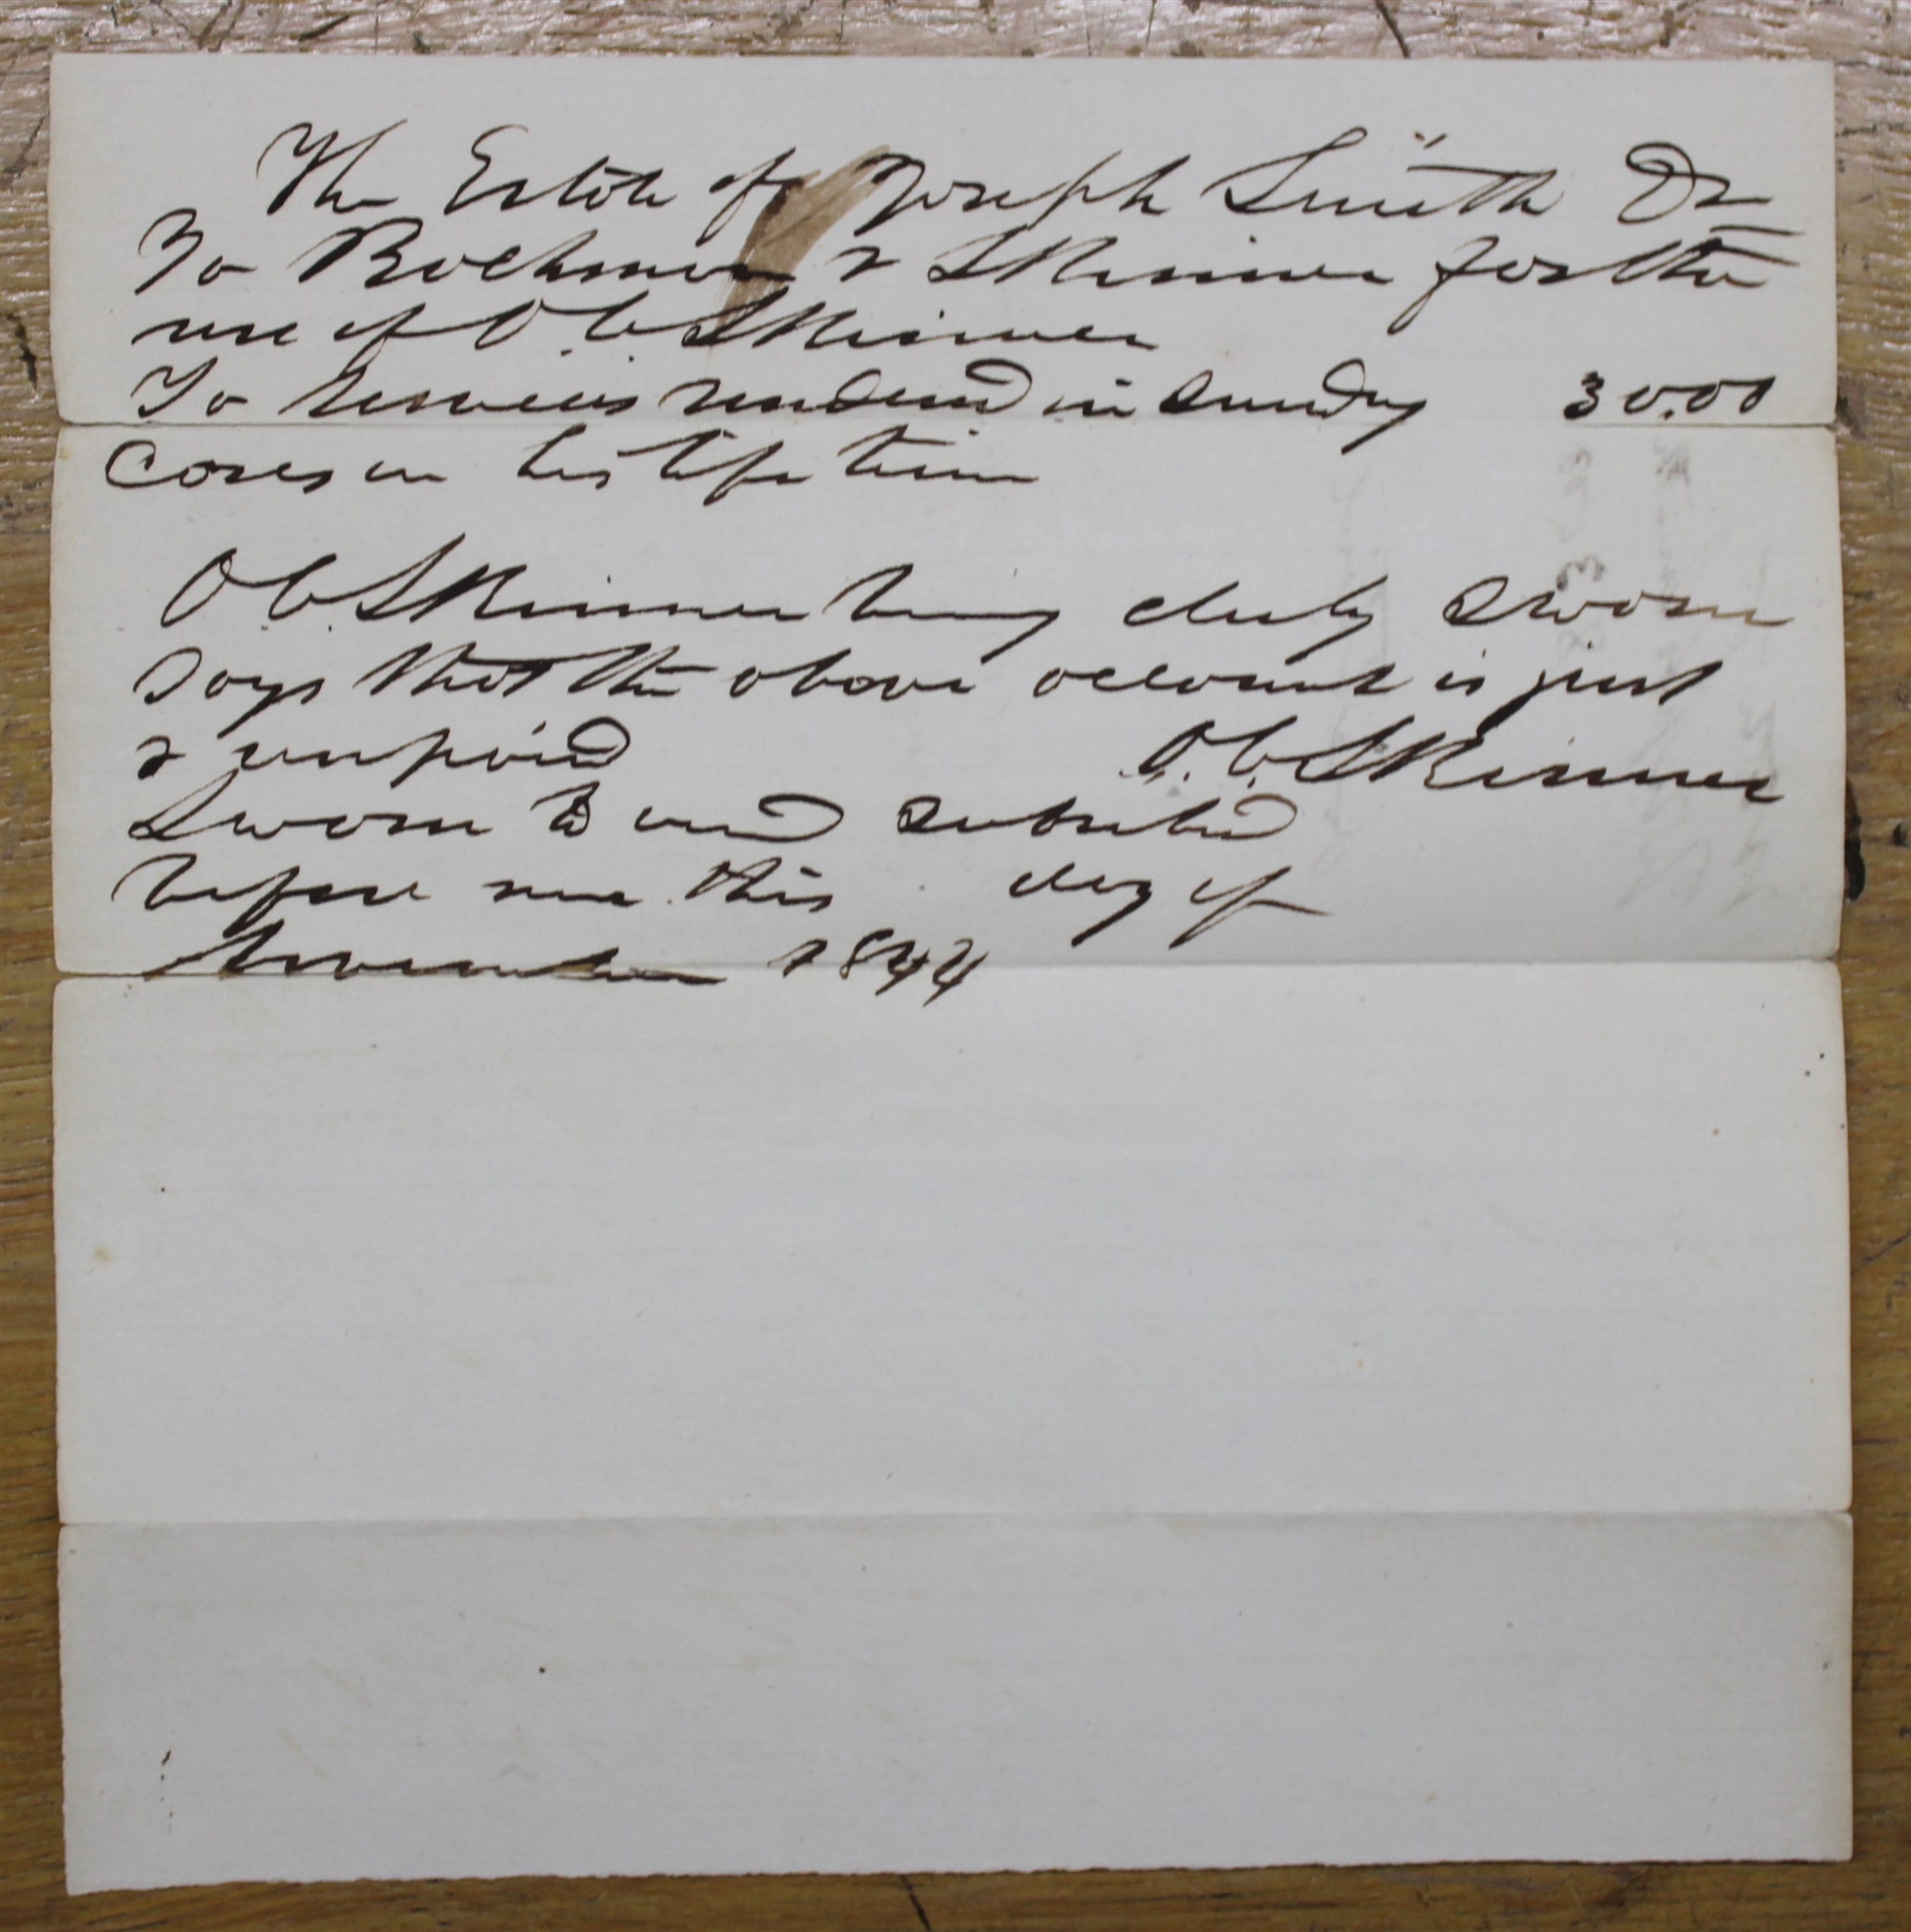 The Estate of Joseph Smith Dr
To Bachman & Skinner for the
use of O. C. Skinner
To Services rendered in sundry 30.00
Cases in his life time
O. C. Skinner being duly sworn
says that the above account is just
& unpaid O. C. Skinner
Sworn to and subscribed
before me this day of
November 1844